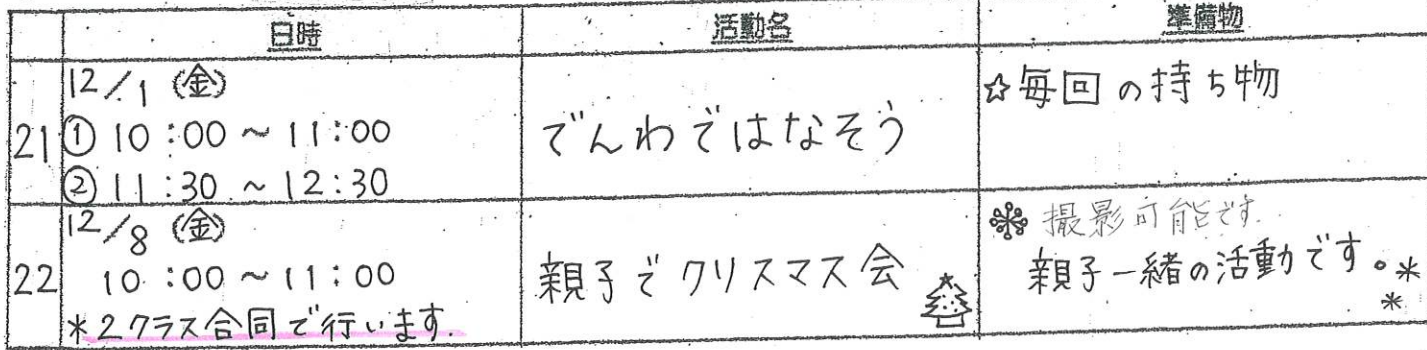 日時 活動名 準備物
21
12/1 (金)
① 10:00 ~ 11:00
② 11:30 ~ 12:30
でんわではなそう
☆毎回の持ち物
22
12/8 (金)
10:00 ~ 11:00
*2クラス合同で行います.
親子でクリスマス会
撮影可能です.
親子一緒の活動です。